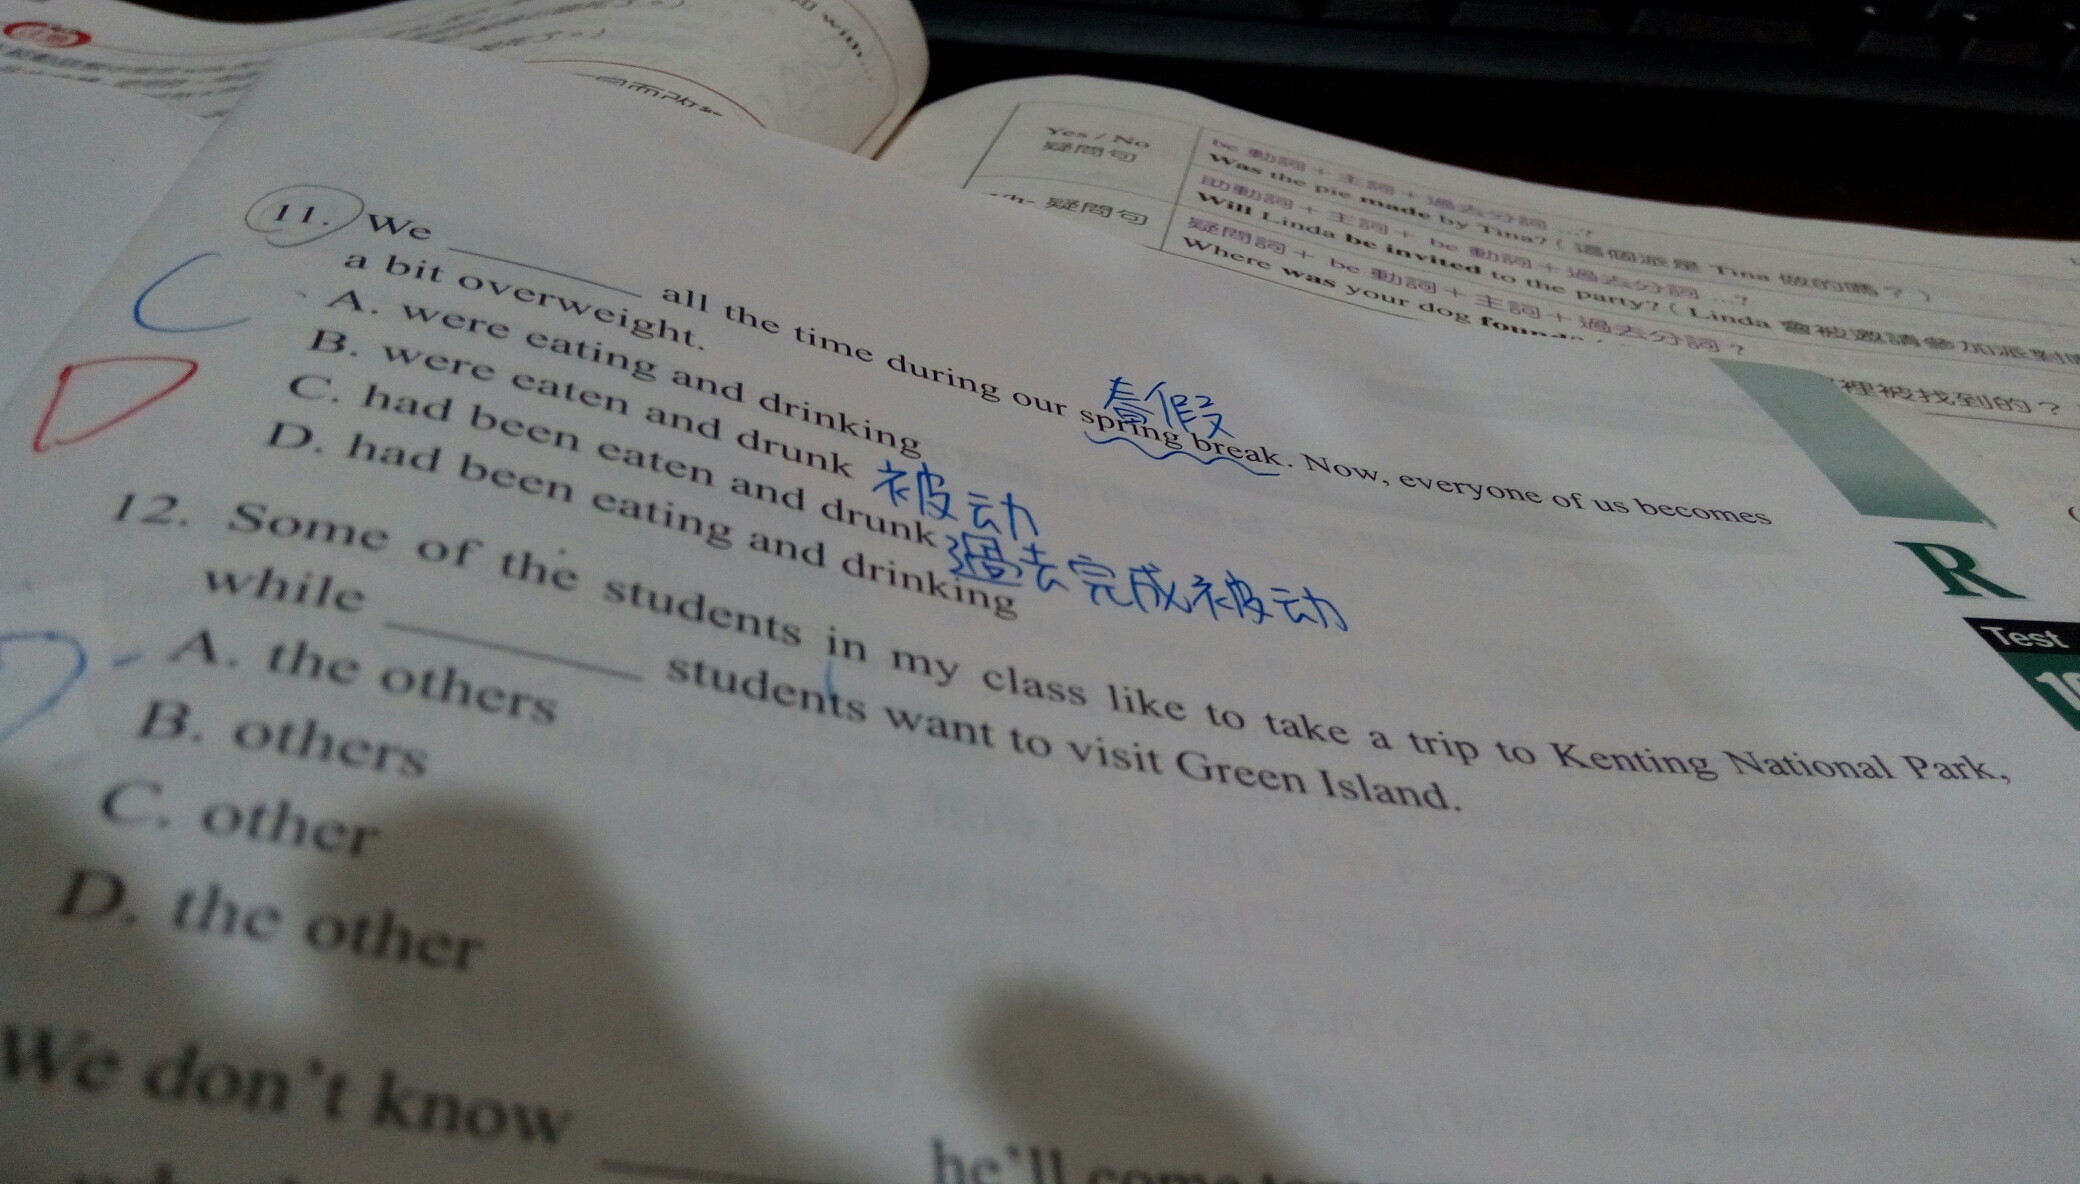 with...
Yes / No
疑問句
be 動詞 + 主詞 + 過去分詞 ...?
Was the pie made by Tina? ( 這個派是 Tina 做的嗎? )
助動詞 + 主詞 + be 動詞 + 過去分詞 ...?
Will Linda be invited to the party? ( Linda 會被邀請參加派對
疑問句
疑問詞 + be 動詞 + 主詞 + 過去分詞?
Where was your dog found
裡被找到的?
11. We ______ all the time during our spring break. Now, everyone of us becomes
春假
a bit overweight.
C
A. were eating and drinking
B. were eaten and drunk 被动
D
C. had been eaten and drunk 過去完成被动
D. had been eating and drinking
12. Some of the students in my class like to take a trip to Kenting National Park,
while ______ students want to visit Green Island.
A. the others
B. others
C. other
D. the other
We don't know ______ he'll come
R
Test